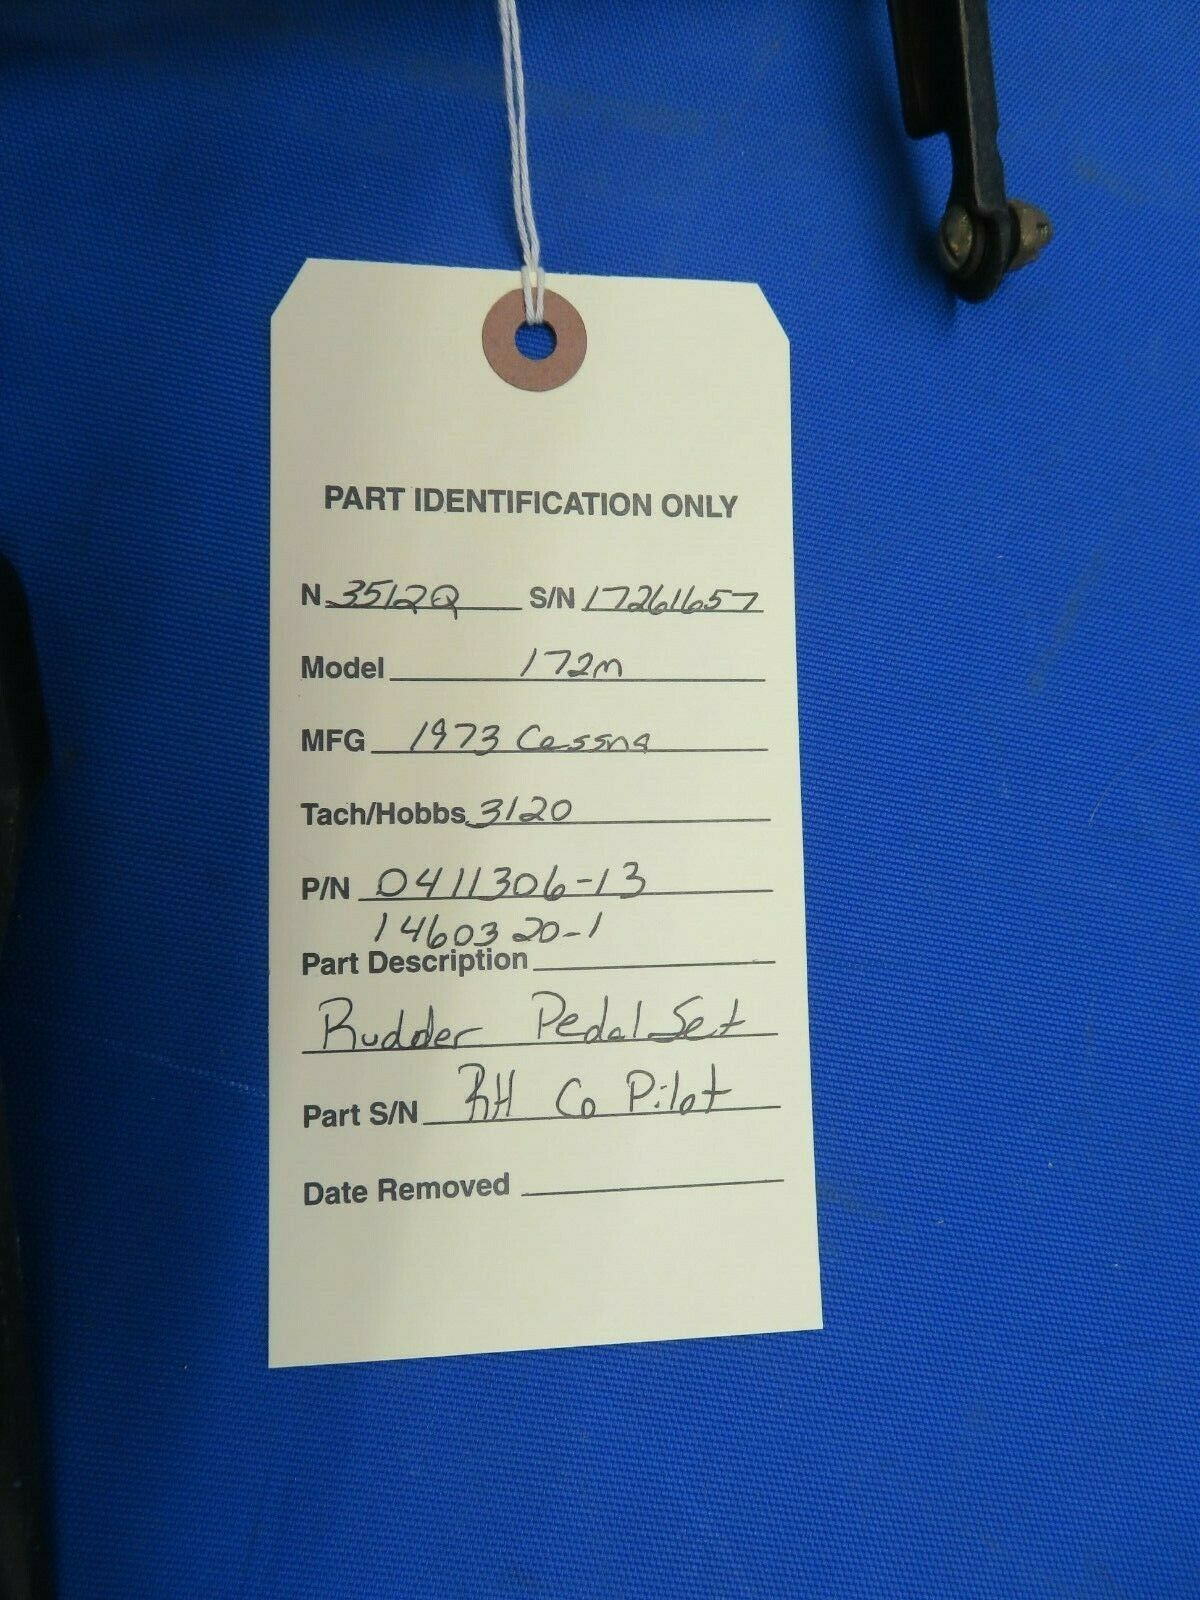 PART IDENTIFICATION ONLY
N 3512Q S/N 17261657
Model 172m
MFG 1973 Cessna
Tach/Hobbs 3120
P/N 0411306-13
1460320-1
Part Description
Rudder Pedal Set
Part S/N RH Co Pilot
Date Removed